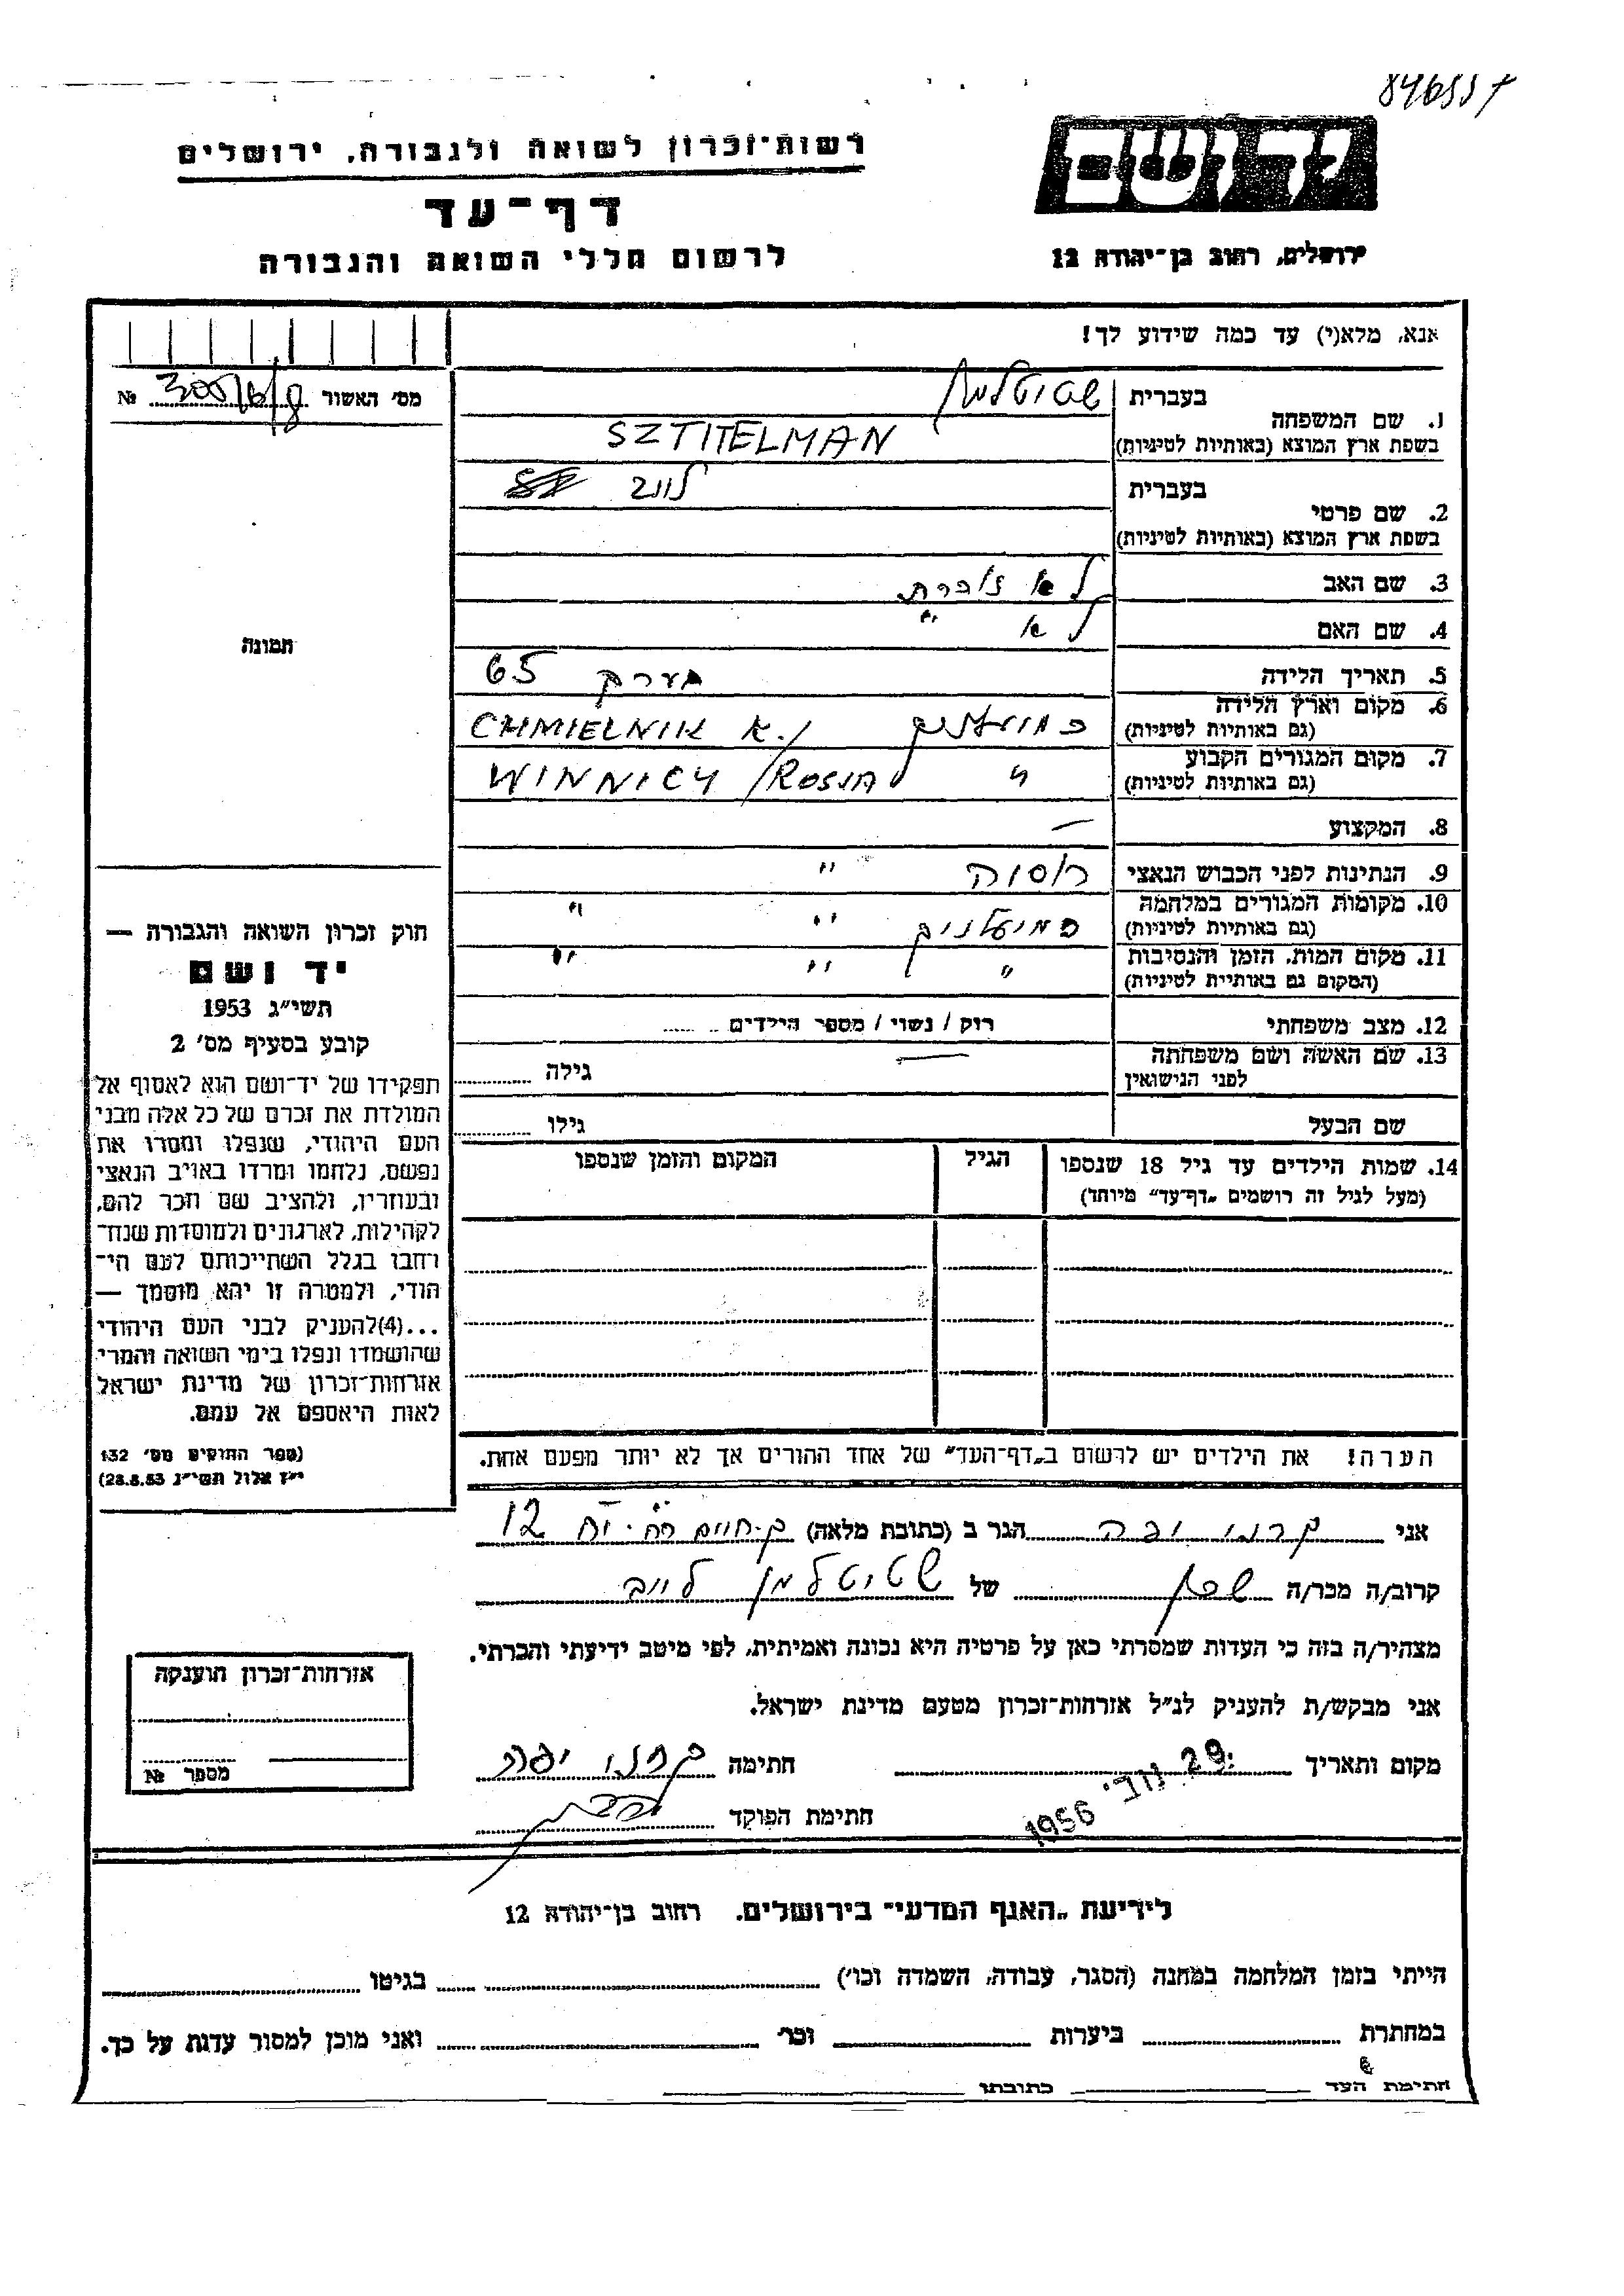 רשות־זכרון לשואה ולגבורה, ירושלים
יד ושם
דף־עד
לרשום חללי השואה והגבורה
ירושלים, רחוב בן־יהודה 12
אנא, מלא(י) עד כמה שידוע לך!
מס' האשור №
1. שם המשפחה
בעברית
בשפת ארץ המוצא (באותיות לטיניות)
SZTITELMAN
2. שם פרטי
בעברית לייב
בשפת ארץ המוצא (באותיות לטיניות)
3. שם האב לא זוכרת
4. שם האם לא "
5. תאריך הלידה בערך 65
6. מקום וארץ הלידה
(גם באותיות לטיניות)
CHMIELNIK K./
7. מקום המגורים הקבוע "
(גם באותיות לטיניות)
WINNICY /ROSJA
8. המקצוע —
9. הנתינות לפני הכבוש הנאצי רוסיה "
10. מקומות המגורים במלחמה " "
(גם באותיות לטיניות)
11. מקום המות, הזמן והנסיבות " " "
(המקום גם באותיית לטיניות)
12. מצב משפחתי רוק / נשוי / מספר הילדים
13. שם האשה ושם משפחתה — גילה
לפני הנישואין
שם הבעל גילו
14. שמות הילדים עד גיל 18 שנספו הגיל המקום והזמן שנספו
(מעל לגיל זה רושמים „דף־עד" מיוחד)
הערה! את הילדים יש לרשום ב„דף־העד" של אחד ההורים אך לא יותר מפעם אחת.
תמונה
חוק זכרון השואה והגבורה —
יד ושם
תשי"ג 1953
קובע בסעיף מס' 2
תפקידו של יד־ושם הוא לאסוף אל
המולדת את זכרם של כל אלה מבני
העם היהודי, שנפלו ומסרו את
נפשם, נלחמו ומרדו באויב הנאצי
ובעוזריו, ולהציב שם וזכר להם,
לקהילות, לארגונים ולמוסדות שנח־
רחבו בגלל השתייכותם לעם הי־
הודי, ולמטרה זו יהא מוסמך —
...(4)להעניק לבני העם היהודי
שהושמדו ונפלו בימי השואה והמרי
אזרחות־זכרון של מדינת ישראל
לאות היאספם אל עמם.
(ספר החוקים מס' 132
י"ז אלול תשי"ג 28.8.53)
אני יפה הגר ב (כתובת מלאה) 12
קרוב/ה מכר/ה שכן של שטיטלמן לייב
מצהיר/ה בזה כי העדות שמסרתי כאן על פרטיה היא נכונה ואמיתית, לפי מיטב ידיעתי והכרתי.
אני מבקש/ת להעניק לנ"ל אזרחות־זכרון מטעם מדינת ישראל.
מקום ותאריך 29 נוב' 1956 חתימה יפה
חתימת הפוקד
אזרחות־זכרון הוענקה
מספר №
לידיעת „האגף המדעי" בירושלים. רחוב בן־יהודה 12
הייתי בזמן המלחמה במחנה (הסגר, עבודה, השמדה וכו') בגיטו
במחתרת ביערות וכו' ואני מוכן למסור עדות על כך.
חתימת העד כתובתו